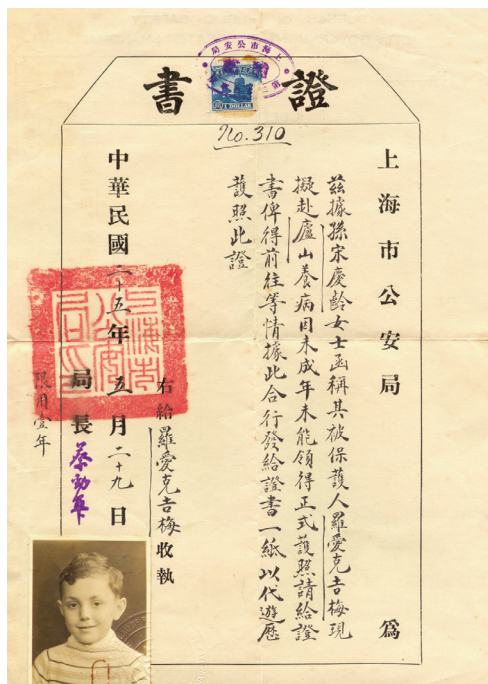 上海市公安局
證書
No. 310
上海市公安局 為
茲據孫宋慶齡女士函稱其被保護人羅愛克吉梅現
擬赴廬山養病因未成年未能領得正式護照請給證
書俾得前往等情據此合行發給證書一紙以代遊歷
護照此證
右給羅愛克吉梅收執
中華民國二十五年五月二十九日
局長蔡勁軍
限用壹年
上海市公安局印